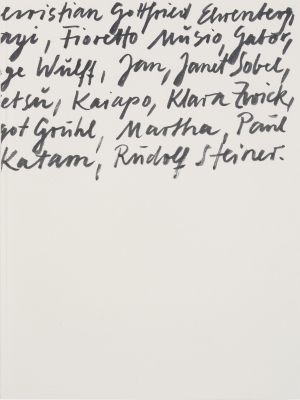 christian Gottfried Ehrenberg,
ayi, Fioretto Musio, Gabor,
ge Wulff, Jan, Janet Sobel,
etsu, Kaiapo, Klara Zwick,
got Grühl, Martha, Paul
Katam, Rudolf Steiner.